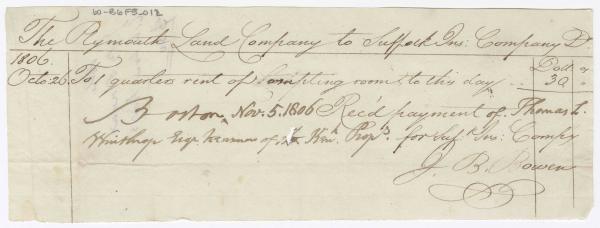 60-B6F5-012
The Plymouth Land Company to Suffolk Ins: Company Dr.
1806. Doll cs
Octo. 26. To 1 quarters rent of Compting room to this day .. 30 "
Boston, Nov. 5. 1806 Rec'd payment of Thomas L.
Winthrop Esqr. Treasurer of Ken. Props. for Suf. Ins: Compy
J. B. Bowen